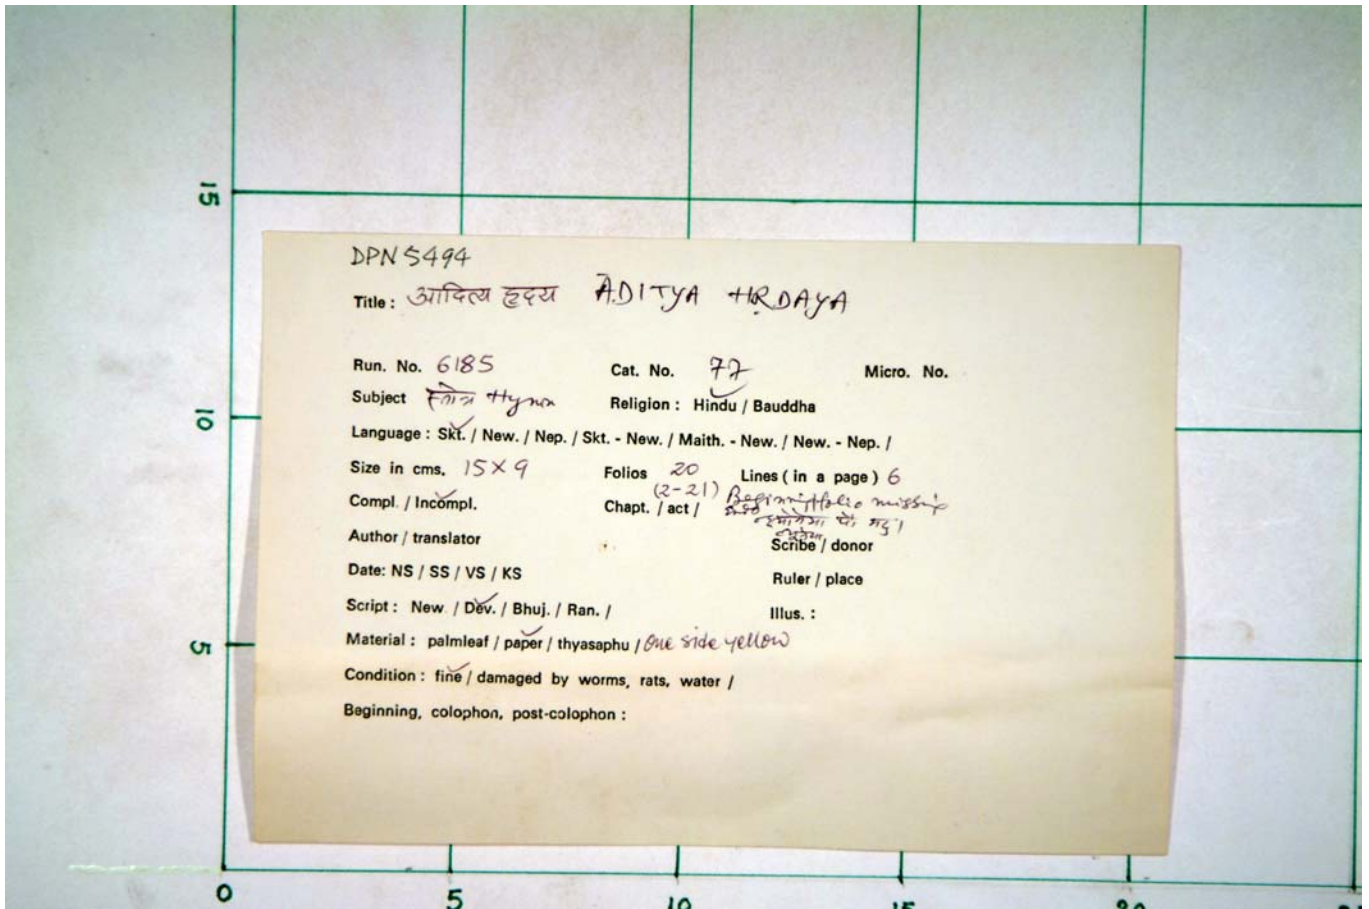 DPN 5494
Title : आदित्य हृदय ĀDITYA HṚDAYA
Run. No. 6185 Cat. No. 77 Micro. No.
Subject स्तोत्र Hymn Religion : Hindu / Bauddha
Language : Skt. / New. / Nep. / Skt. - New. / Maith. - New. / New. - Nep. /
Size in cms. 15 X 9 Folios 20 Lines ( in a page ) 6
(2-21)
Compl. / Incompl. Chapt. / act / folio missing
Author / translator Scribe / donor
Date: NS / SS / VS / KS Ruler / place
Script : New. / Dev. / Bhuj. / Ran. / Illus. :
Material : palmleaf / paper / thyasaphu / One side yellow
Condition : fine / damaged by worms, rats, water /
Beginning, colophon, post-colophon :
15
10
5
0 5 10 15 20